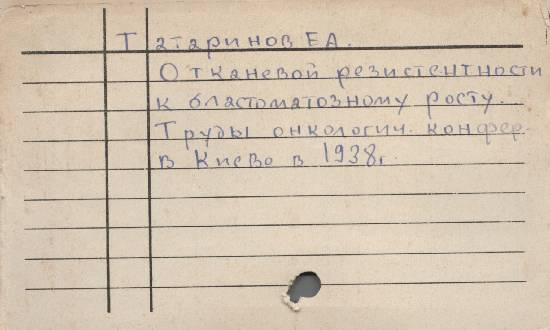 Татаринов Е А.
О тканевой резистентности
к бластоматозному росту.
Труды онкологич. конфер.
в Киево в 1938г.